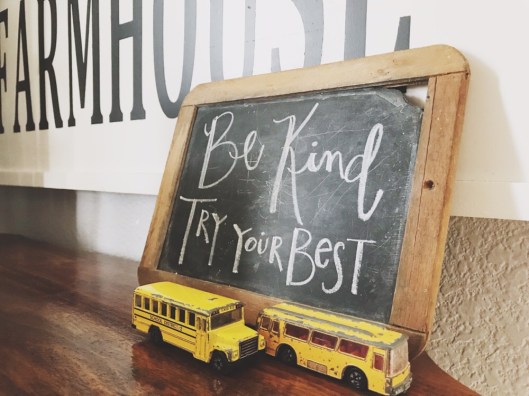 FARMHOUSE
Be Kind
TRY YOUR BEST